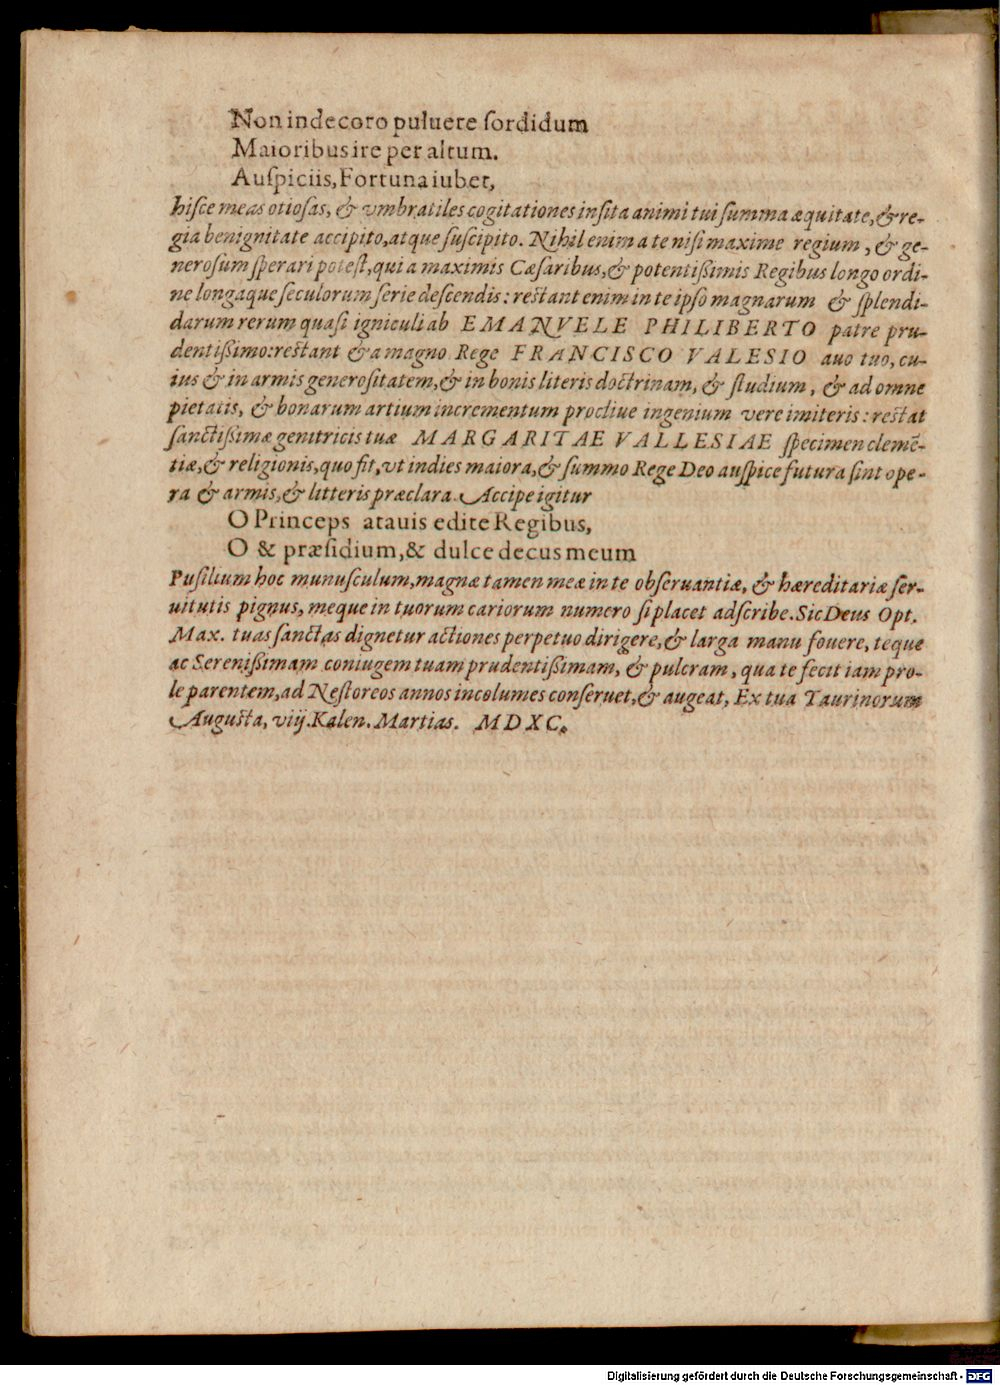 Non indecoro puluere ſordidum
Maioribus ire per altum.
Auſpiciis, Fortuna iubet,
hiſce meas otioſas, & vmbratiles cogitationes inſita animi tui ſumma æquitate, & re-
gia benignitate accipito, atque ſuſcipito. Nihil enim a te niſi maxime regium, & ge-
neroſum ſperari poteſt, qui a maximis Cæſaribus, & potentißimis Regibus longo ordi-
ne longaque ſeculorum ſerie deſcendis: reſtant enim in te ipſo magnarum & ſplendi-
darum rerum quaſi igniculi ab EMANVELE PHILIBERTO patre pru-
dentißimo: reſtant & a magno Rege FRANCISCO VALESIO auo tuo, cu-
ius & in armis generoſitatem, & in bonis literis doctrinam, & ſtudium, & ad omne
pietatis, & bonarum artium incrementum procliue ingenium vere imiteris: reſtat
ſanctißimæ genitricis tuæ MARGARITAE VALLESIAE ſpecimen clemẽ-
tiæ, & religionis, quo fit, vt indies maiora, & ſummo Rege Deo auſpice futura ſint ope-
ra & armis, & litteris præclara. Accipe igitur
O Princeps atauis edite Regibus,
O & præſidium, & dulce decus meum
Puſillum hoc munuſculum, magnæ tamen meæ in te obſeruantiæ, & hæreditariæ ſer-
uitutis pignus, meque in tuorum cariorum numero ſi placet adſcribe. Sic Deus Opt.
Max. tuas ſanctas dignetur actiones perpetuo dirigere, & larga manu fouere, teque
ac Sereniſſimam coniugem tuam prudentißimam, & pulcram, qua te fecit iam pro-
le parentem, ad Neſtoreos annos incolumes conſeruet, & augeat, Ex tua Taurinorum
Auguſta, viij. Kalen. Martias. MDXC.
Digitalisierung gefördert durch die Deutsche Forschungsgemeinschaft - DFG